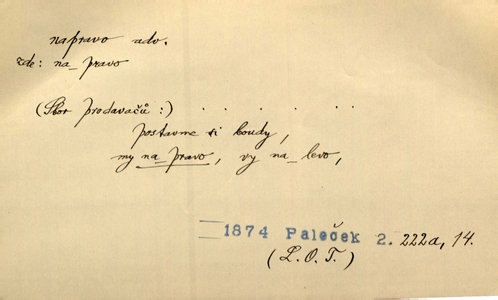 napravo adv.
zde: na_pravo
(Sbor prodavačů:) . . . . . .
postavme si boudy,
my na_pravo, vy na_levo,
1874 Paleček 2. 222a, 14.
(L. O. T.)